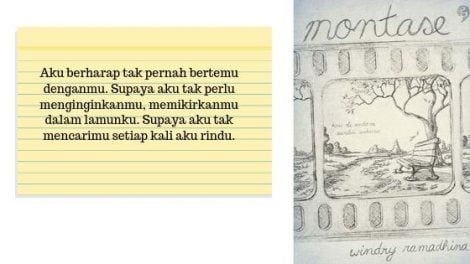 Aku berharap tak pernah bertemu
denganmu. Supaya aku tak perlu
menginginkanmu, memikirkanmu
dalam lamunku. Supaya aku tak
mencarimu setiap kali aku rindu.
montase
windry ramadhina